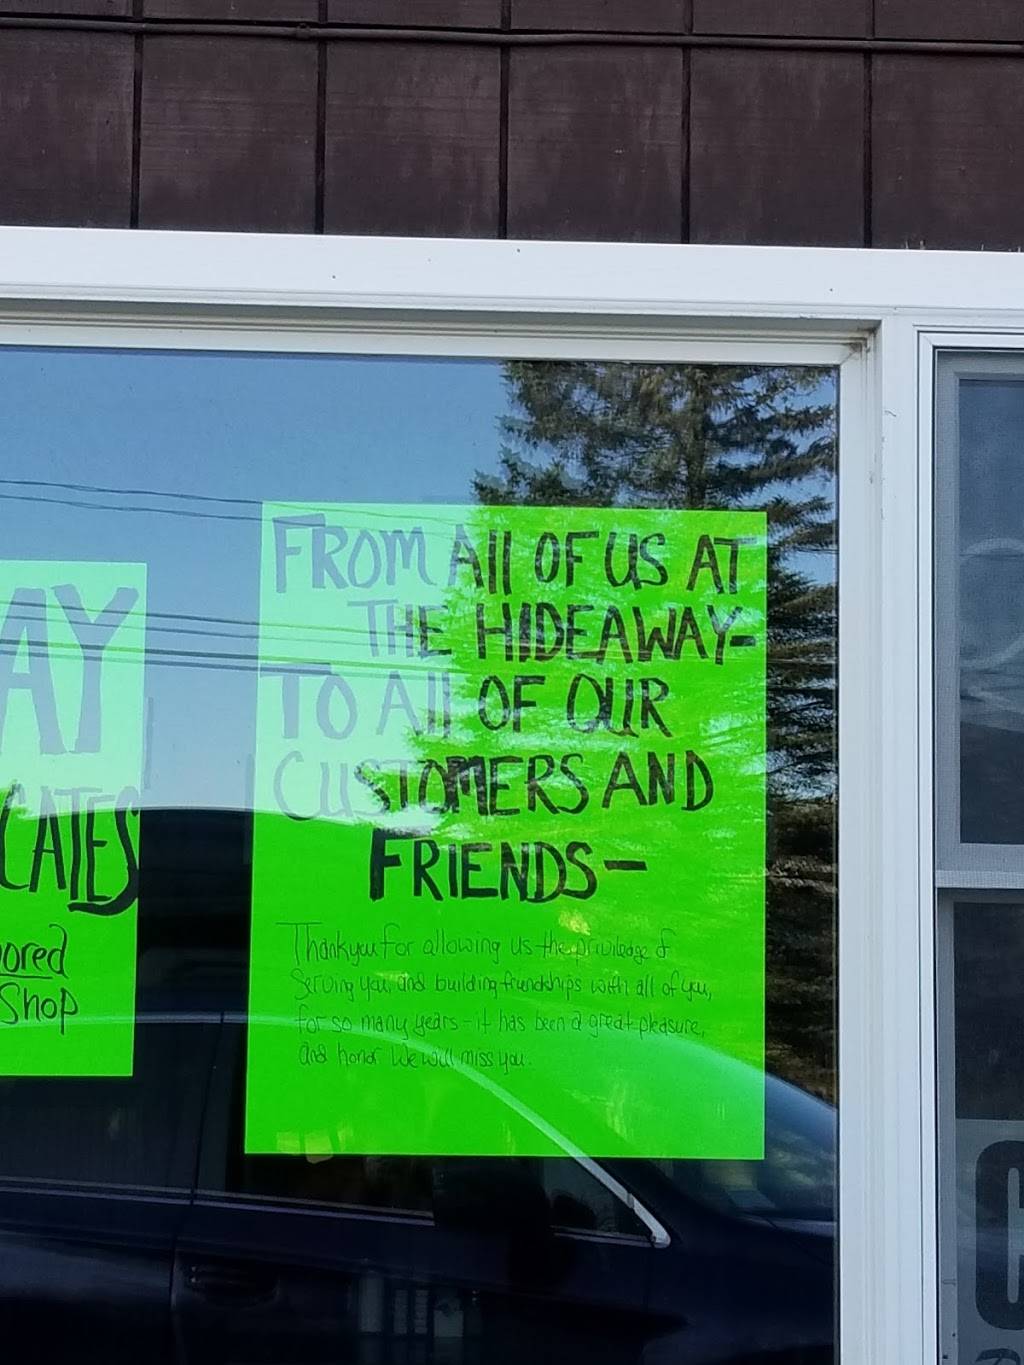 FROM All OF US AT
THE HIDEAWAY-
TO All OF OUR
CUSTOMERS AND
FRIENDS-
Thankyou for allowing us the priviledge of
Serving you, and building friendships with all of you,
for so many years - it has been a great pleasure,
and honor. We will miss you.
AY
CATES
ored
Shop
C